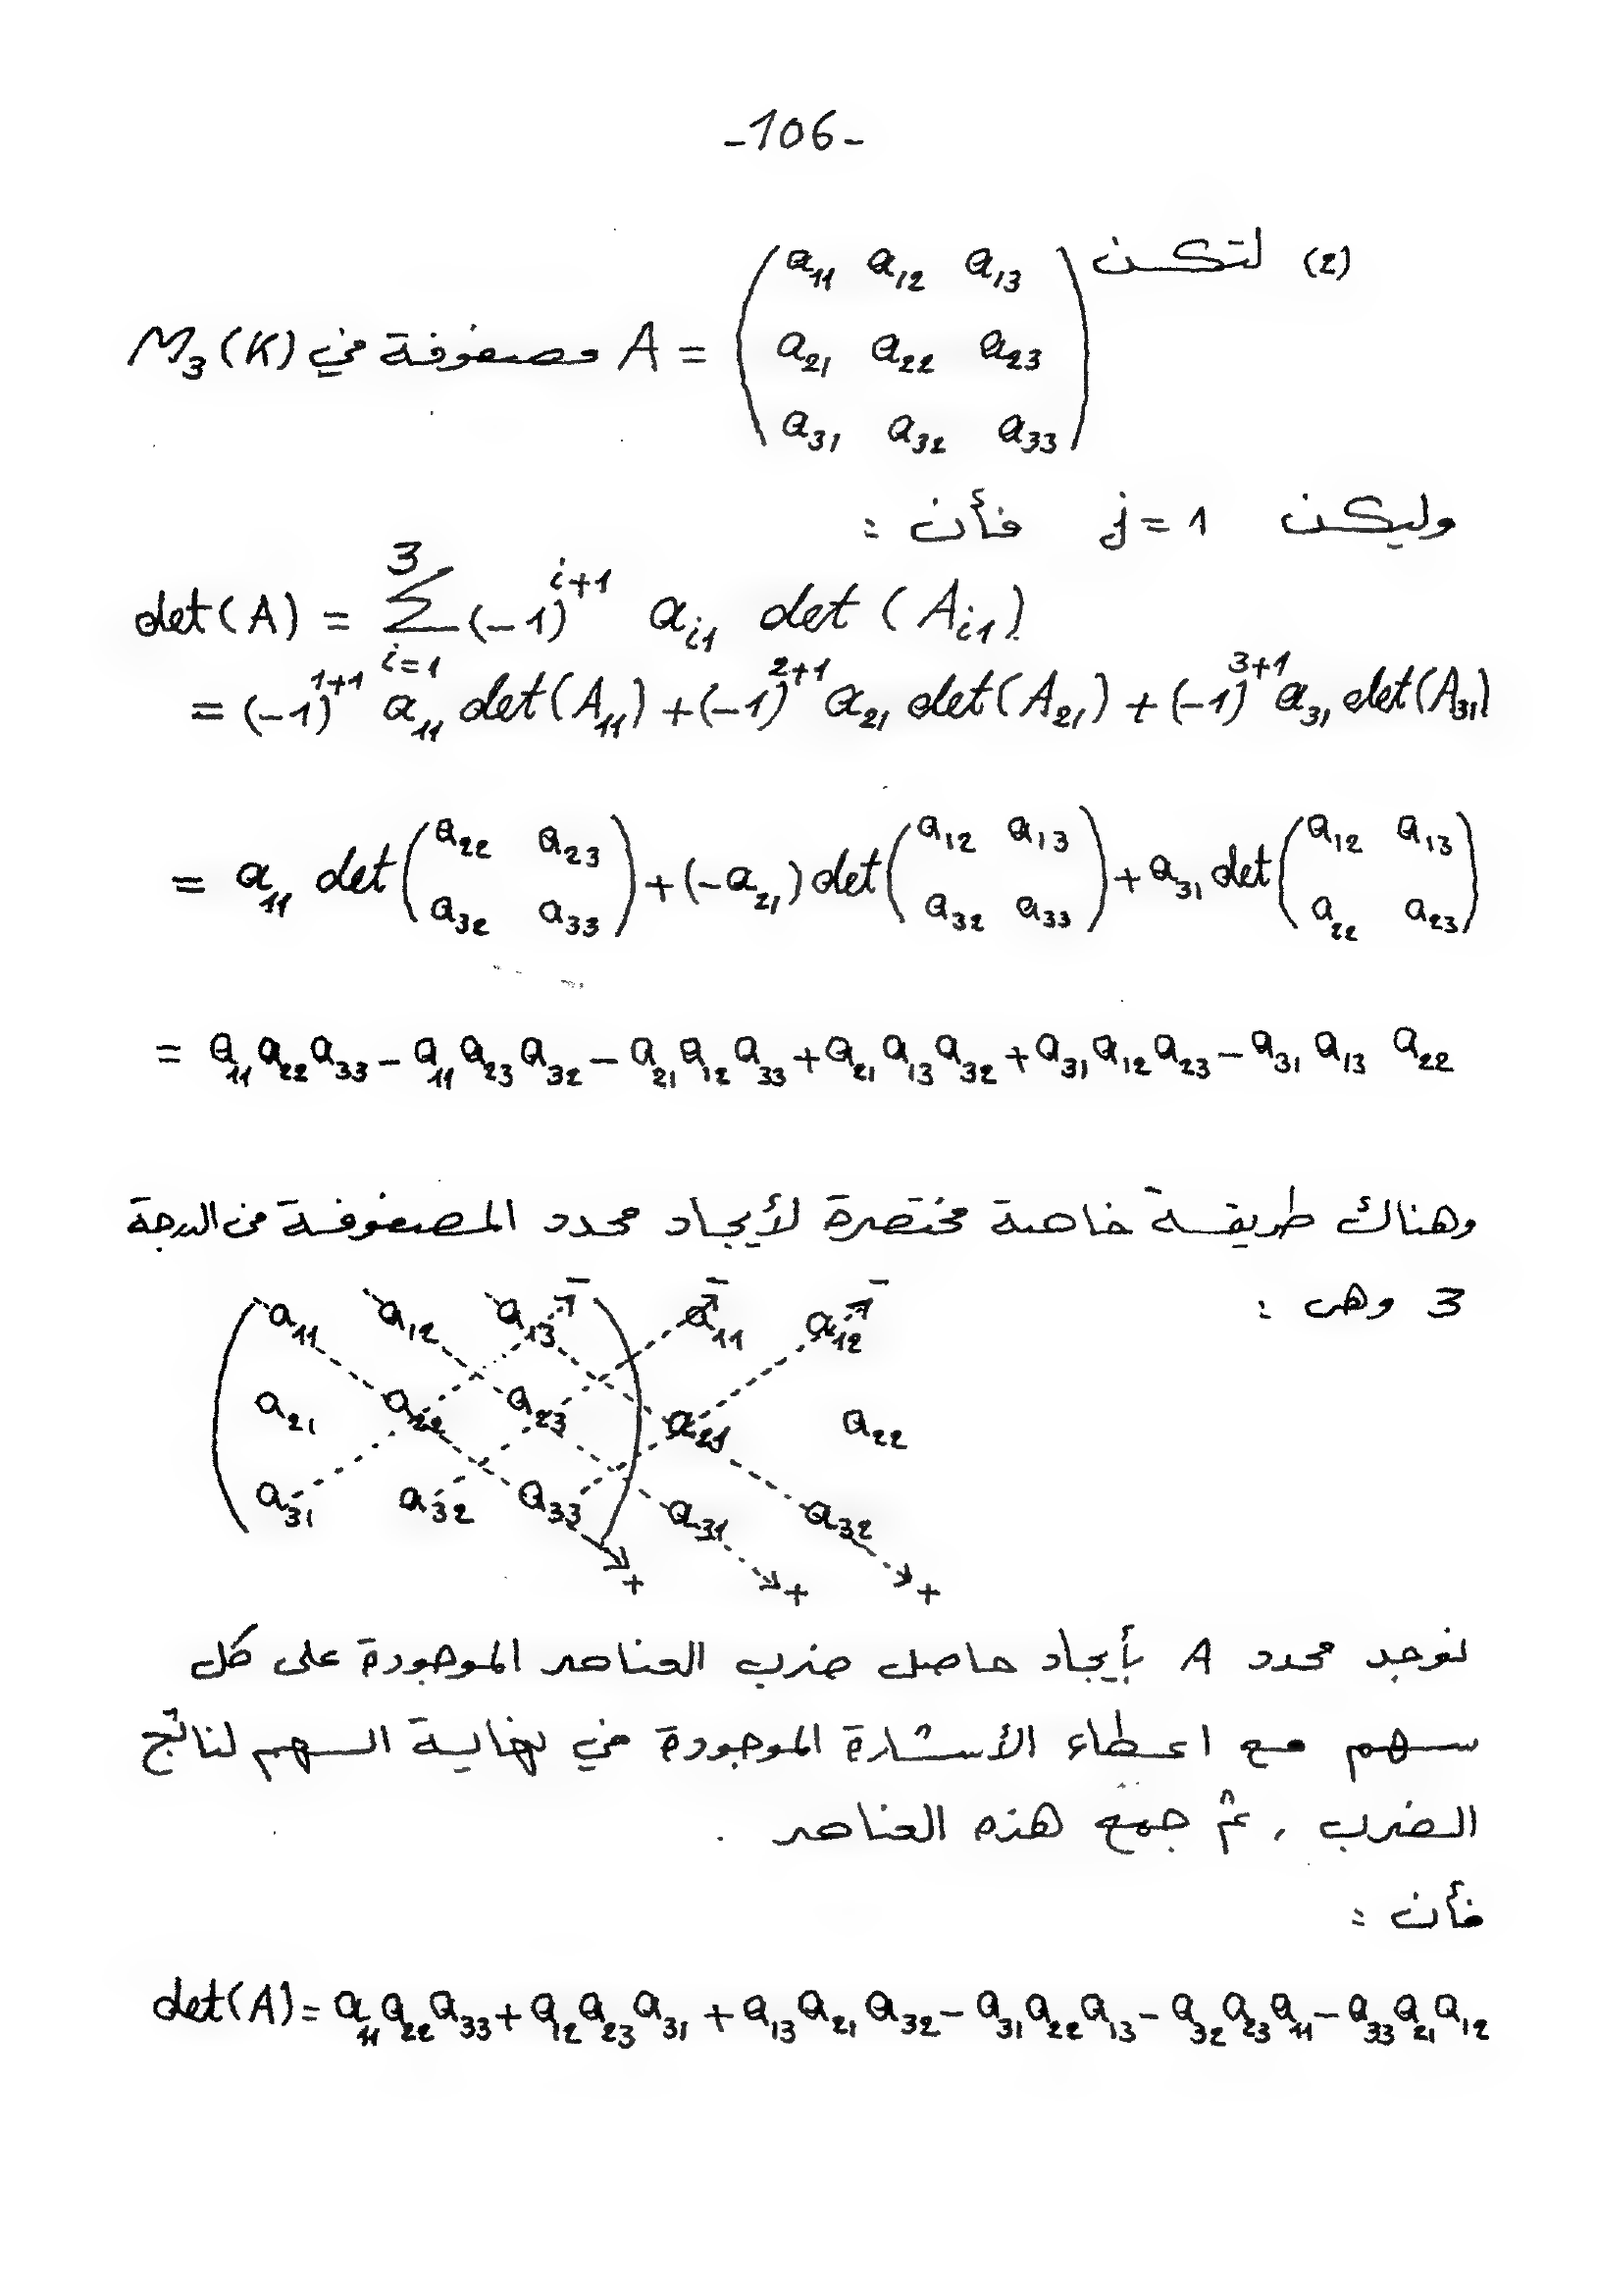 -106-
(2) لتكن A = \begin{pmatrix} a_{11} & a_{12} & a_{13} \\ a_{21} & a_{22} & a_{23} \\ a_{31} & a_{32} & a_{33} \end{pmatrix} مصفوفة في M_3(K)
وليكن j = 1 فأن :
det(A) = \sum_{i=1}^{3} (-1)^{i+1} a_{i1} det(A_{i1})
= (-1)^{1+1} a_{11} det(A_{11}) + (-1)^{2+1} a_{21} det(A_{21}) + (-1)^{3+1} a_{31} det(A_{31})
= a_{11} det\begin{pmatrix} a_{22} & a_{23} \\ a_{32} & a_{33} \end{pmatrix} + (-a_{21}) det\begin{pmatrix} a_{12} & a_{13} \\ a_{32} & a_{33} \end{pmatrix} + a_{31} det\begin{pmatrix} a_{12} & a_{13} \\ a_{22} & a_{23} \end{pmatrix}
= a_{11}a_{22}a_{33} - a_{11}a_{23}a_{32} - a_{21}a_{12}a_{33} + a_{21}a_{13}a_{32} + a_{31}a_{12}a_{23} - a_{31}a_{13}a_{22}
وهناك طريقة خاصة مختصرة لأيجاد محدد المصفوفة من الدرجة
3 وهى :
- - -
a_{11} a_{12} a_{13} a_{11} a_{12}
a_{21} a_{22} a_{23} a_{21} a_{22}
a_{31} a_{32} a_{33} a_{31} a_{32}
+ + +
نوجد محدد A بأيجاد حاصل ضرب العناصر الموجودة على كل
سهم مع اعطاء الأشارة الموجودة في نهاية السهم لناتج
الضرب ، ثم جمع هذه العناصر .
فأن :
det(A) = a_{11}a_{22}a_{33} + a_{12}a_{23}a_{31} + a_{13}a_{21}a_{32} - a_{31}a_{22}a_{13} - a_{32}a_{23}a_{11} - a_{33}a_{21}a_{12}